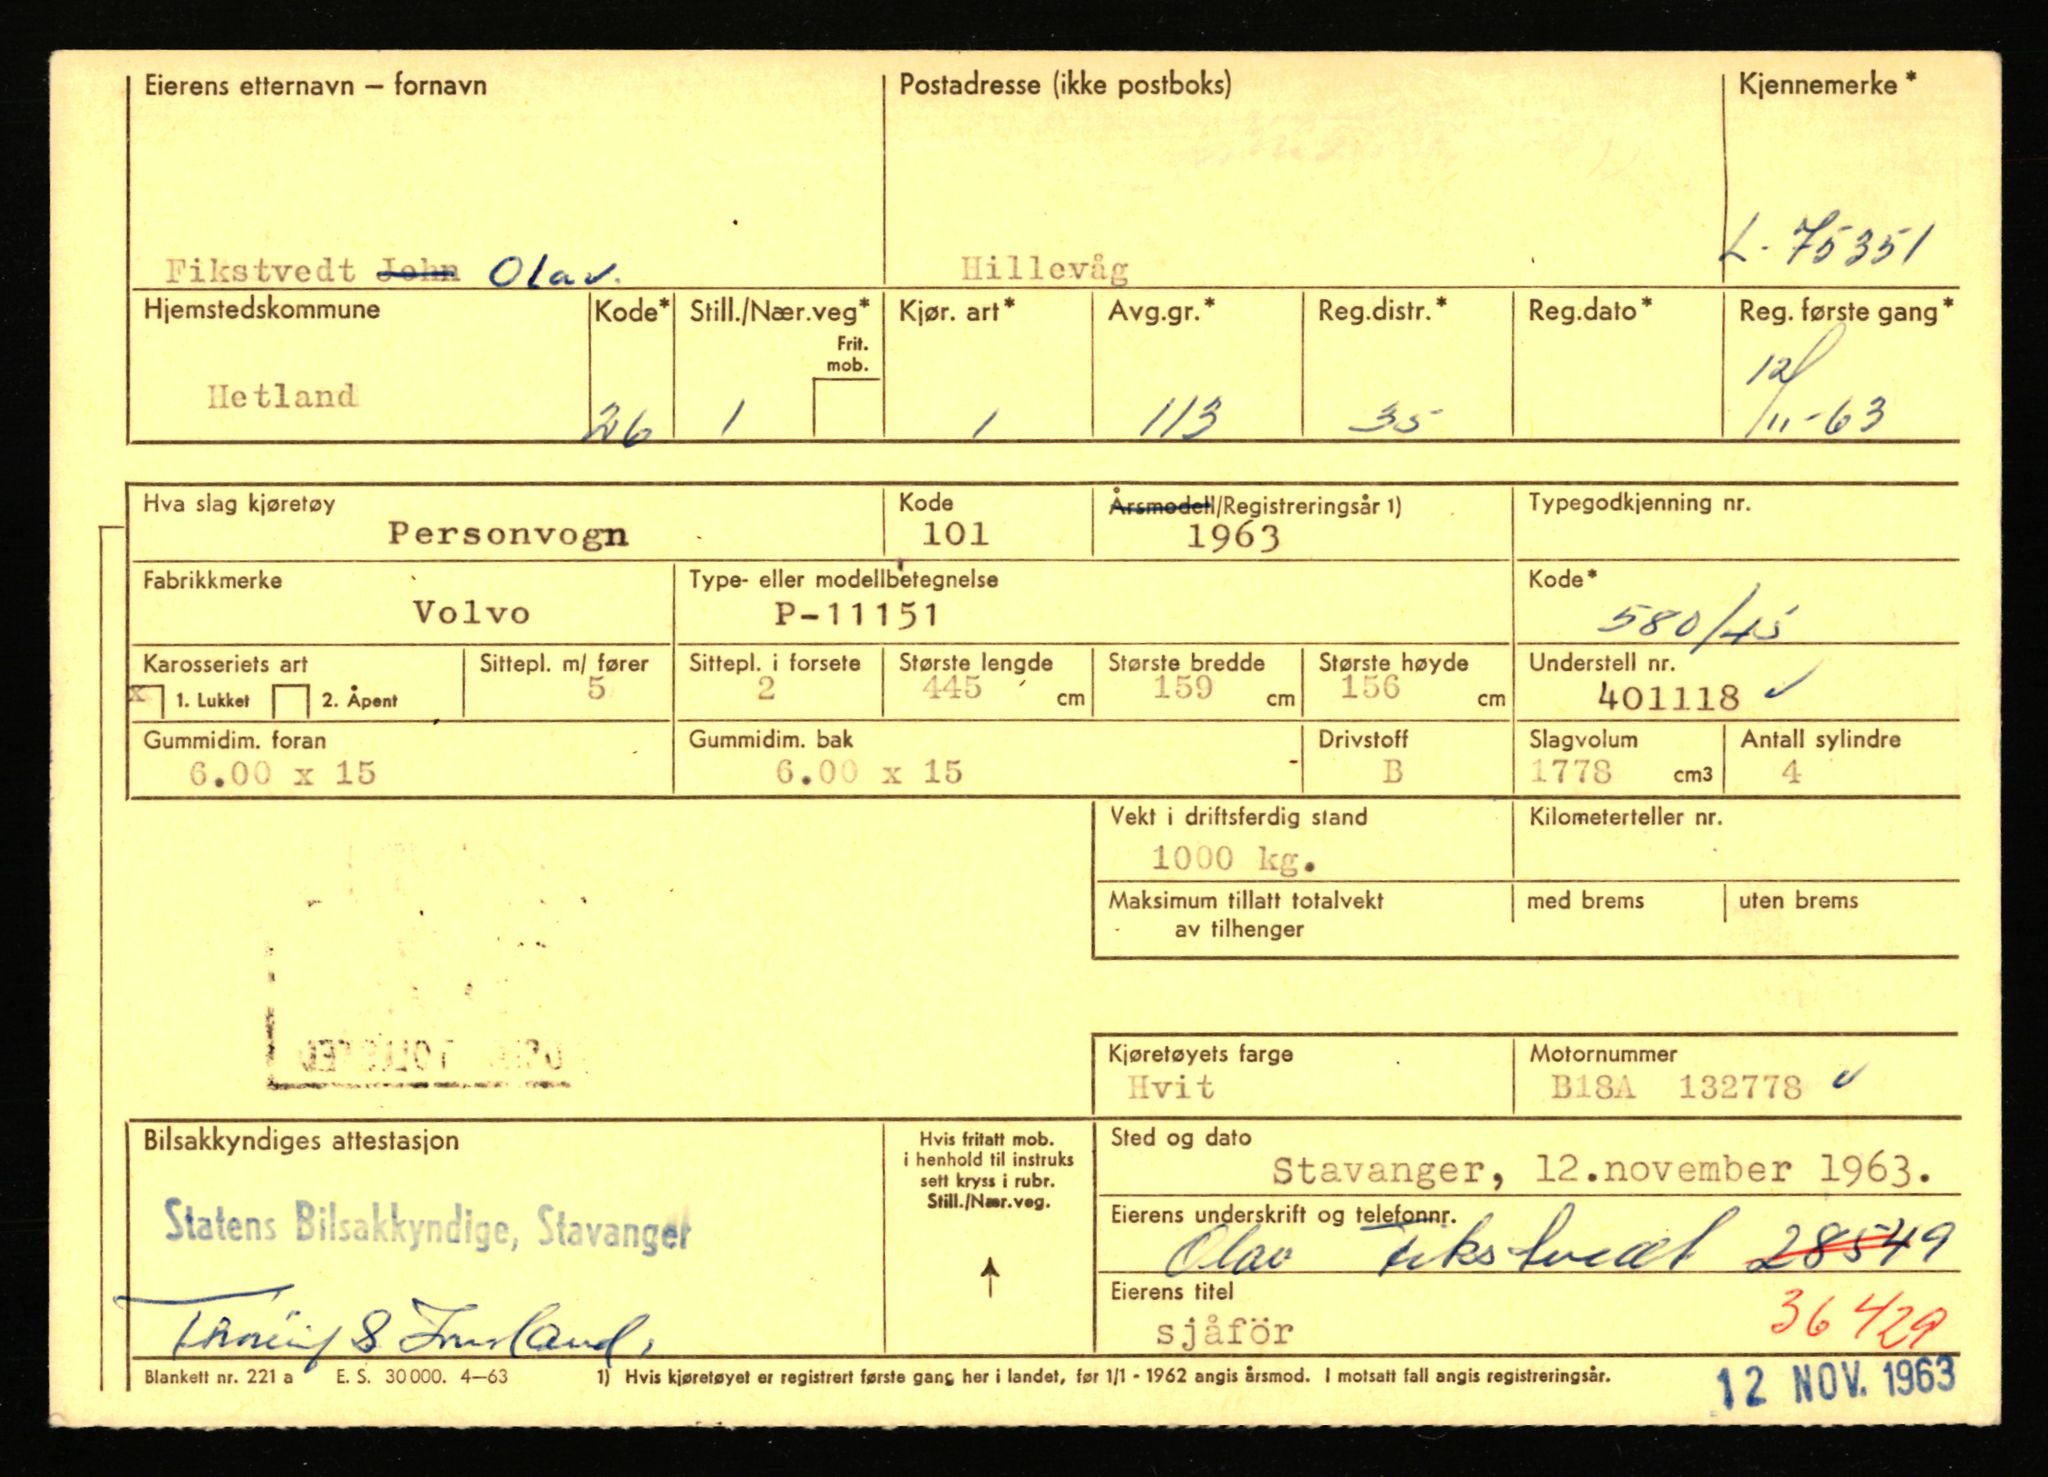 Eierens etternavn – fornavn Postadresse (ikke postboks) Kjennemerke*
Fikstvedt John Olav. Hillevåg L-75351
Hjemstedskommune Kode* Still./Nær.veg* Kjør. art* Avg.gr.* Reg.distr.* Reg.dato* Reg. første gang*
Frit.
mob.
Hetland 26 1 1 113 35 12/11-63
Hva slag kjøretøy Kode Årsmodell/Registreringsår 1) Typegodkjenning nr.
Personvogn 101 1963
Fabrikkmerke Type- eller modellbetegnelse Kode*
Volvo P-11151 580/45
Karosseriets art Sittepl. m/ fører Sittepl. i forsete Største lengde Største bredde Største høyde Understell nr.
x 1. Lukket 2. Åpent 5 2 445 cm 159 cm 156 cm 401118
Gummidim. foran Gummidim. bak Drivstoff Slagvolum Antall sylindre
6.00 x 15 6.00 x 15 B 1778 cm3 4
Vekt i driftsferdig stand Kilometerteller nr.
1000 kg.
Maksimum tillatt totalvekt med brems uten brems
av tilhenger
Kjøretøyets farge Motornummer
Hvit B18A 132778
Bilsakkyndiges attestasjon Hvis fritatt mob. Sted og dato
i henhold til instruks
sett kryss i rubr.
Still./Nær.veg.
Stavanger, 12.november 1963.
Statens Bilsakkyndige, Stavanger
Eierens underskrift og telefonnr.
Olav Fikstvedt 28549
Eierens titel
sjåför 36429
Blankett nr. 221 a E. S. 30 000. 4–63 1) Hvis kjøretøyet er registrert første gang her i landet, før 1/1 - 1962 angis årsmod. I motsatt fall angis registreringsår.
12 NOV. 1963